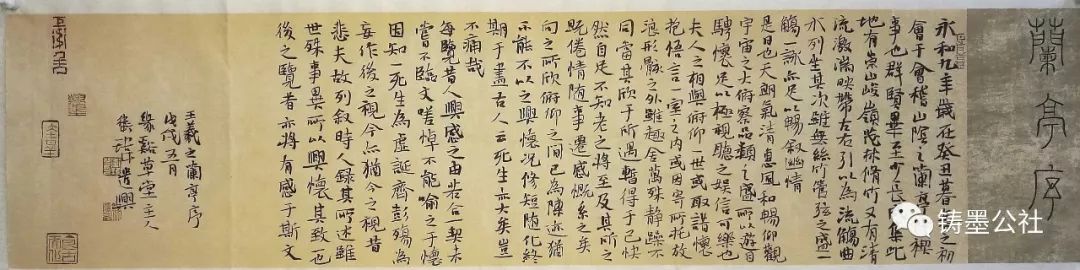 蘭亭序
永和九年歲在癸丑暮春之初
會于會稽山陰之蘭亭 禊
事也群賢畢至少長咸集此
地有崇山峻嶺茂林脩竹又有清
流激湍映帶左右引以為流觴曲
水列坐其次雖無絲竹管弦之盛一
觴一詠亦足以暢叙幽情
是日也天朗氣清惠風和暢仰觀
宇宙之大俯察品類之盛所以遊目
騁懷足以極視聽之娛信可樂也
夫人之相與俯仰一世或取諸懷
抱悟言一室之內或因寄所托放
浪形骸之外雖趣舍萬殊靜躁不
同當其欣于所遇暫得于己快
然自足不知老之將至及其所之
既倦情隨事遷感慨係之矣
向之所欣俯仰之間已為陳迹猶
不能不以之興懷況修短隨化終
期于盡古人云死生亦大矣豈
不痛哉
每覽昔人興感之由若合一契未
嘗不臨文嗟悼不能喻之于懷
固知一死生為虛誕齊彭殤為
妄作後之視今亦猶今之視昔
悲夫故列敘時人錄其所述雖
世殊事異所以興懷其致一也
後之覽者亦將有感于斯文
王羲之蘭亭序
戊戌五月
緣谿草堂主人
遣興
铸墨公社